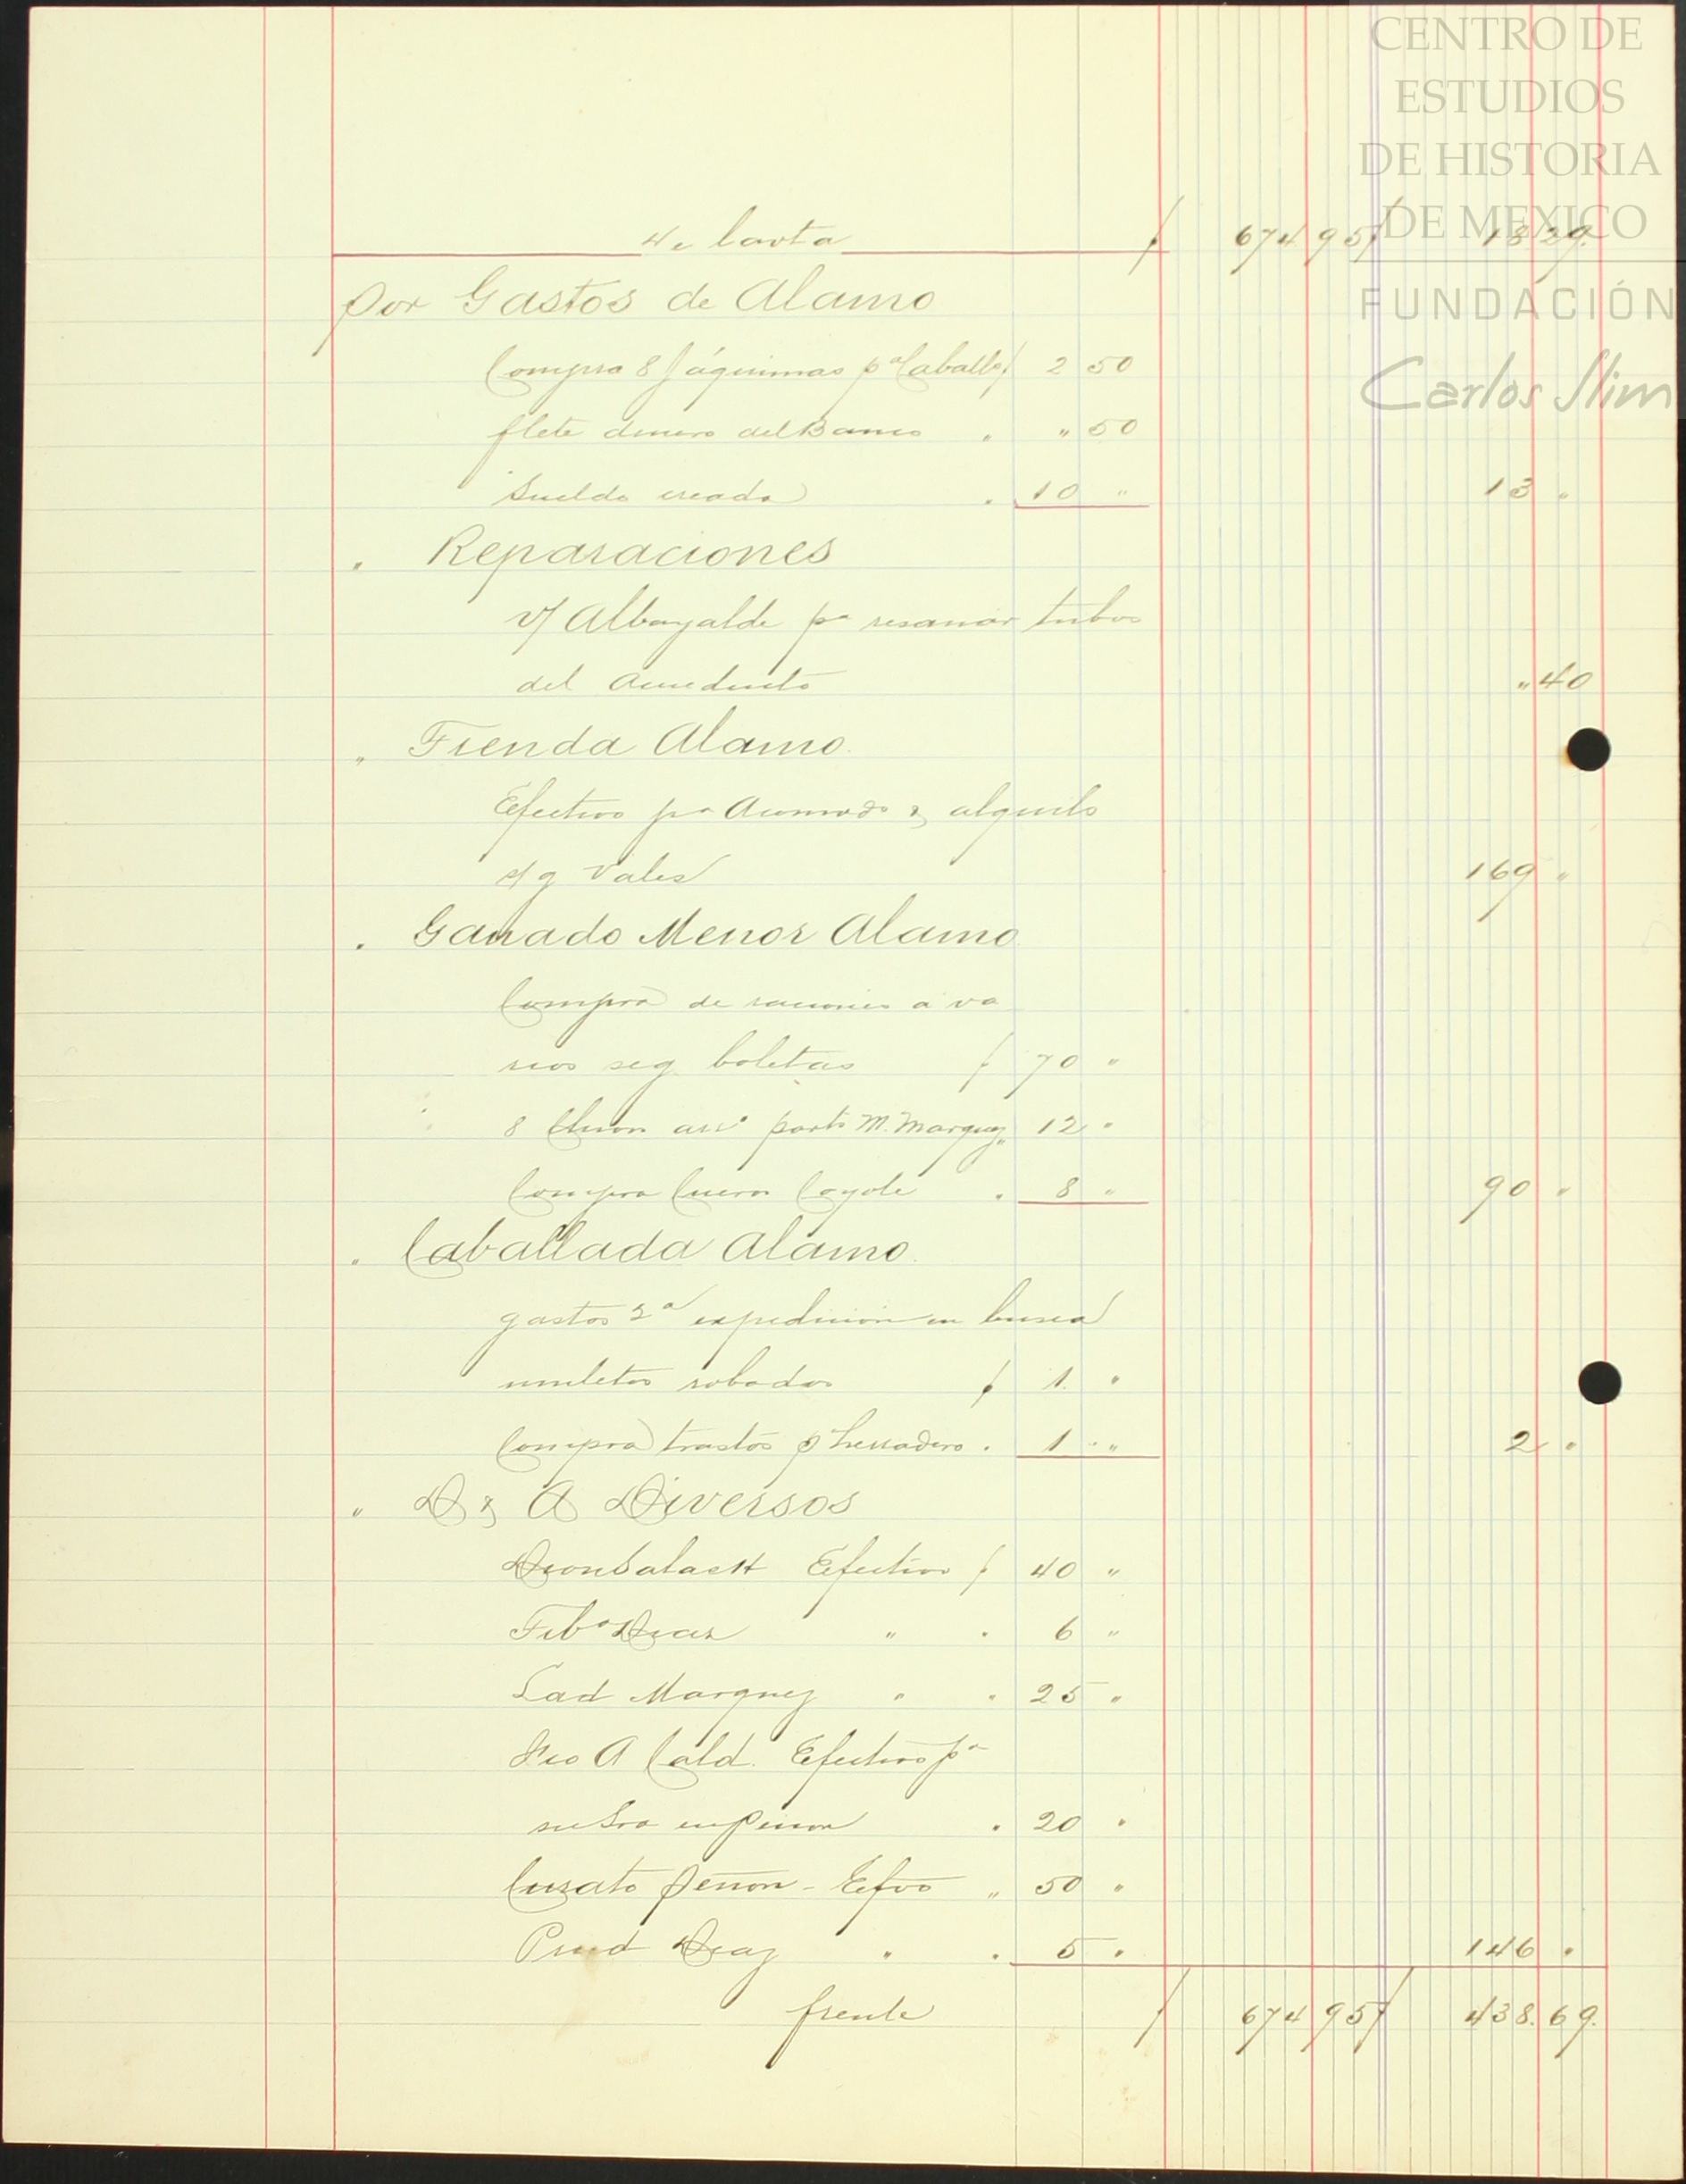 CENTRO DE
ESTUDIOS
DE HISTORIA
DE MEXICO
FUNDACIÓN
Carlos Slim
de la vta $ 674 95 $ 18 29.
Por Gastos de Alamo
Compra 8 Jáquimas pª Caballos $ 2 50
flete dinero del Banco " " 50
Sueldo criada " 10 " 13 "
" Reparaciones
v/ Albayalde pª resanar tubos
del Acueducto " 40
" Tienda Alamo.
Efectivo pª Acomodo & alquilo
sg Vales 169 "
" Ganado Menor Alamo
Compra de raciones a va
rios seg boletas $ 70 "
8 parto M. Marquez " 12 "
Compra Cueros Coyote " 8 " 90 "
" Caballada Alamo.
gastos 2ª expedicion en busca
muletos robados $ 1. "
Compra trastos p herradero " 1 " 2 "
" D & A Diversos
Efectivo $ 40 "
Díaz " " 6 "
Lad Marquez " " 25 "
Fco A Cald. Efectivo pª
su Sra en Peñon " 20 "
Curato Peñon - Efvo " 50 "
Prud Diaz " " 5 " 146 "
frente $ 674 95 $ 438. 69.